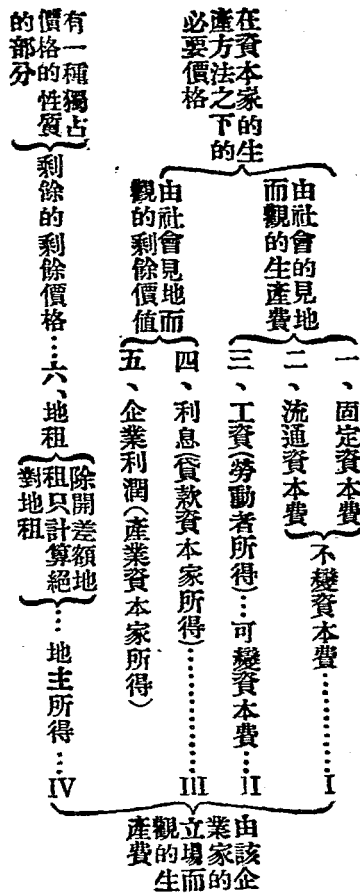 在資本家的生
產方法之下的
必要價格
由社會的見地
而觀的生產費
一、固定資本費
二、流通資本費
不變資本費…………I
三、工資(勞動者所得)…可變資本費…II
由社會見地而
觀的剩餘價值
四、利息(貸款資本家所得)…………III
五、企業利潤(產業資本家所得)
有一種獨占
價格的性質
的部分
剩餘的剩餘價格……六、地租
除開差額地
租只計算絕
對地租
……地主所得…IV
由該企
業家的
立場而
觀的生
產費